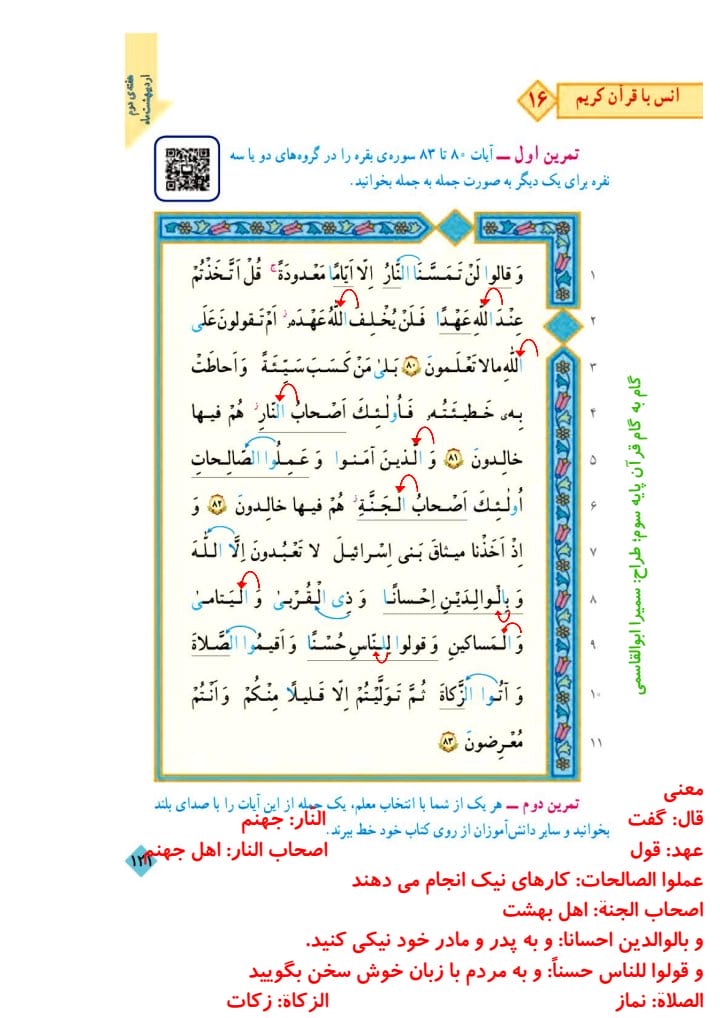 هفته‌ی دوم
اردیبهشت‌ماه
انس با قرآن کریم ۱۶
تمرین اول ــ آیات ۸۰ تا ۸۳ سوره‌ی بقره را در گروه‌های دو یا سه
نفره برای یک دیگر به صورت جمله به جمله بخوانید.
۱ وَ قالوا لَنْ تَمَسَّنَا النّارُ اِلّا اَیّامًا مَعْدودَةً ۚ قُلْ اَتَّخَذْتُمْ
۲ عِنْدَ اللّٰهِ عَهْدًا فَلَنْ یُخْلِفَ اللّٰهُ عَهْدَهٗ ۖ اَمْ تَقولونَ عَلَی
۳ اللّٰهِ ما لا تَعْلَمونَ ۸۰ بَلیٰ مَنْ کَسَبَ سَیِّئَةً وَ اَحاطَتْ
۴ بِهٖ خَطیئَتُهٗ فَاُولٰئِکَ اَصْحابُ النّارِ ۖ هُمْ فیها
۵ خالِدونَ ۸۱ وَ الَّذینَ آمَنوا وَ عَمِلُوا الصّالِحاتِ
۶ اُولٰئِکَ اَصْحابُ الْجَنَّةِ ۖ هُمْ فیها خالِدونَ ۸۲ وَ
۷ اِذْ اَخَذْنا میثاقَ بَنی اِسْرائیلَ لا تَعْبُدونَ اِلَّا اللّٰهَ
۸ وَ بِالْوالِدَیْنِ اِحْسانًا وَ ذِی الْقُرْبیٰ وَ الْیَتامیٰ
۹ وَ الْمَساکینِ وَ قولوا لِلنّاسِ حُسْنًا وَ اَقیمُوا الصَّلاةَ
۱۰ وَ آتُوا الزَّکاةَ ثُمَّ تَوَلَّیْتُمْ اِلّا قَلیلًا مِنْکُمْ وَ اَنْتُمْ
۱۱ مُعْرِضونَ ۸۳
گام به گام قرآن پایه سوم: طراح: سمیرا ابوالقاسمی
تمرین دوم ــ هر یک از شما با انتخاب معلم، یک جمله از این آیات را با صدای بلند
بخوانید و سایر دانش‌آموزان از روی کتاب خود خط ببرند.
۱۲۱
معنی
قال: گفت النّار: جهنم
عهد: قول اصحاب النار: اهل جهنم
عملوا الصالحات: کارهای نیک انجام می دهند
اصحاب الجنة: اهل بهشت
و بالوالدین احسانا: و به پدر و مادر خود نیکی کنید.
و قولوا للناس حسناً: و به مردم با زبان خوش سخن بگویید
الصلاة: نماز الزکاة: زکات